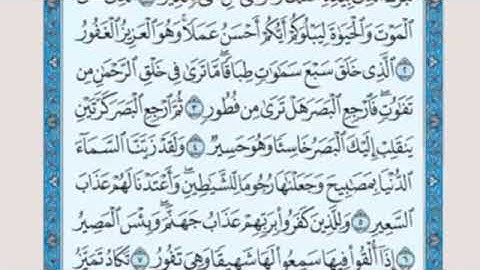 ٱلْمَوْتَ وَٱلْحَيَوٰةَ لِيَبْلُوَكُمْ أَيُّكُمْ أَحْسَنُ عَمَلًا ۚ وَهُوَ ٱلْعَزِيزُ ٱلْغَفُورُ
٢ ٱلَّذِى خَلَقَ سَبْعَ سَمَٰوَٰتٍ طِبَاقًا ۖ مَّا تَرَىٰ فِى خَلْقِ ٱلرَّحْمَٰنِ مِن
تَفَٰوُتٍ ۖ فَٱرْجِعِ ٱلْبَصَرَ هَلْ تَرَىٰ مِن فُطُورٍ ٣ ثُمَّ ٱرْجِعِ ٱلْبَصَرَ كَرَّتَيْنِ
يَنقَلِبْ إِلَيْكَ ٱلْبَصَرُ خَاسِئًا وَهُوَ حَسِيرٌ ٤ وَلَقَدْ زَيَّنَّا ٱلسَّمَآءَ
ٱلدُّنْيَا بِمَصَٰبِيحَ وَجَعَلْنَٰهَا رُجُومًا لِّلشَّيَٰطِينِ ۖ وَأَعْتَدْنَا لَهُمْ عَذَابَ
ٱلسَّعِيرِ ٥ وَلِلَّذِينَ كَفَرُوا۟ بِرَبِّهِمْ عَذَابُ جَهَنَّمَ ۖ وَبِئْسَ ٱلْمَصِيرُ
٦ إِذَآ أُلْقُوا۟ فِيهَا سَمِعُوا۟ لَهَا شَهِيقًا وَهِىَ تَفُورُ ٧ تَكَادُ تَمَيَّزُ